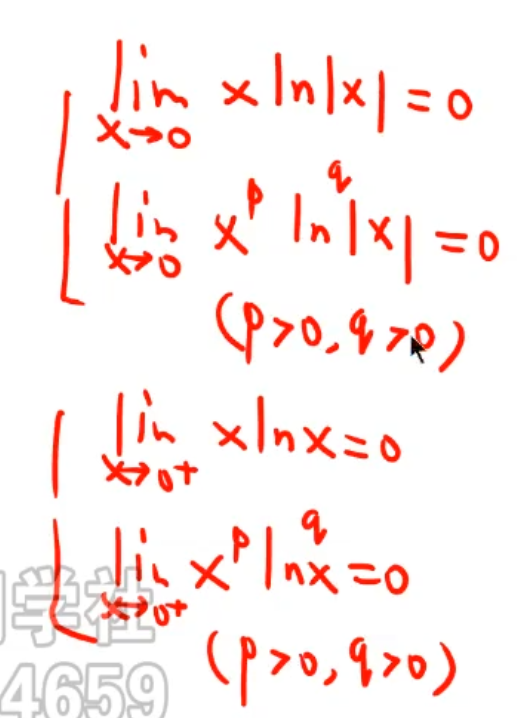 lim x→0 x ln|x| = 0
lim x→0 x^p ln^q|x| = 0
(p>0, q>0)
lim x→0+ x ln x = 0
lim x→0+ x^p ln^q x = 0
学社
(p>0, q>0)
4659